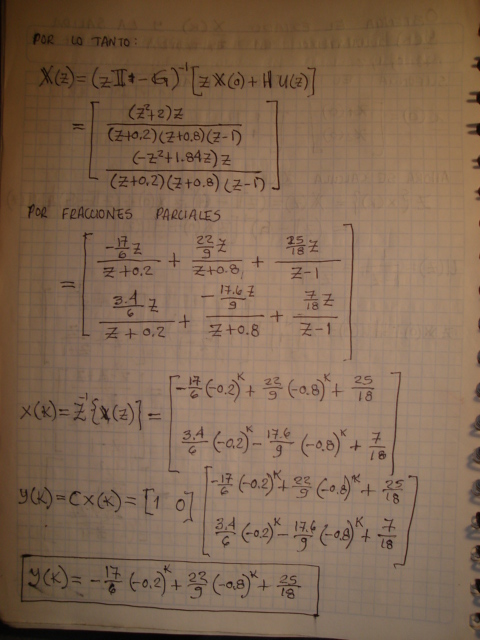 POR LO TANTO:
X(z) = (zII - G)⁻¹ [z X(0) + H U(z)]
= [ (z²+2)z / (z+0.2)(z+0.8)(z-1)
(-z²+1.84z)z / (z+0.2)(z+0.8)(z-1) ]
POR FRACCIONES PARCIALES
= [ -17/6 z / z+0.2 + 22/9 z / z+0.8 + 25/18 z / z-1
3.4/6 z / z+0.2 + -17.6/9 z / z+0.8 + 7/18 z / z-1 ]
X(K) = Z⁻¹{X(z)} = [ -17/6 (-0.2)^K + 22/9 (-0.8)^K + 25/18
3.4/6 (-0.2)^K - 17.6/9 (-0.8)^K + 7/18 ]
y(K) = C X(K) = [1 0] [ -17/6 (-0.2)^K + 22/9 (-0.8)^K + 25/18
3.4/6 (-0.2)^K - 17.6/9 (-0.8)^K + 7/18 ]
y(K) = -17/6 (-0.2)^K + 22/9 (-0.8)^K + 25/18